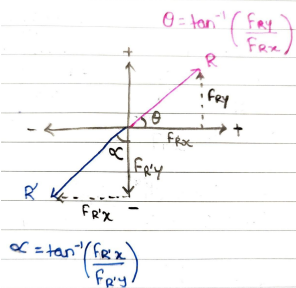 θ = tan⁻¹ (F_Ry / F_Rx)
+
R
F_Ry
θ
- F_Rx +
α
F_R'y
R'
F_R'x -
α = tan⁻¹ (F_R'x / F_R'y)